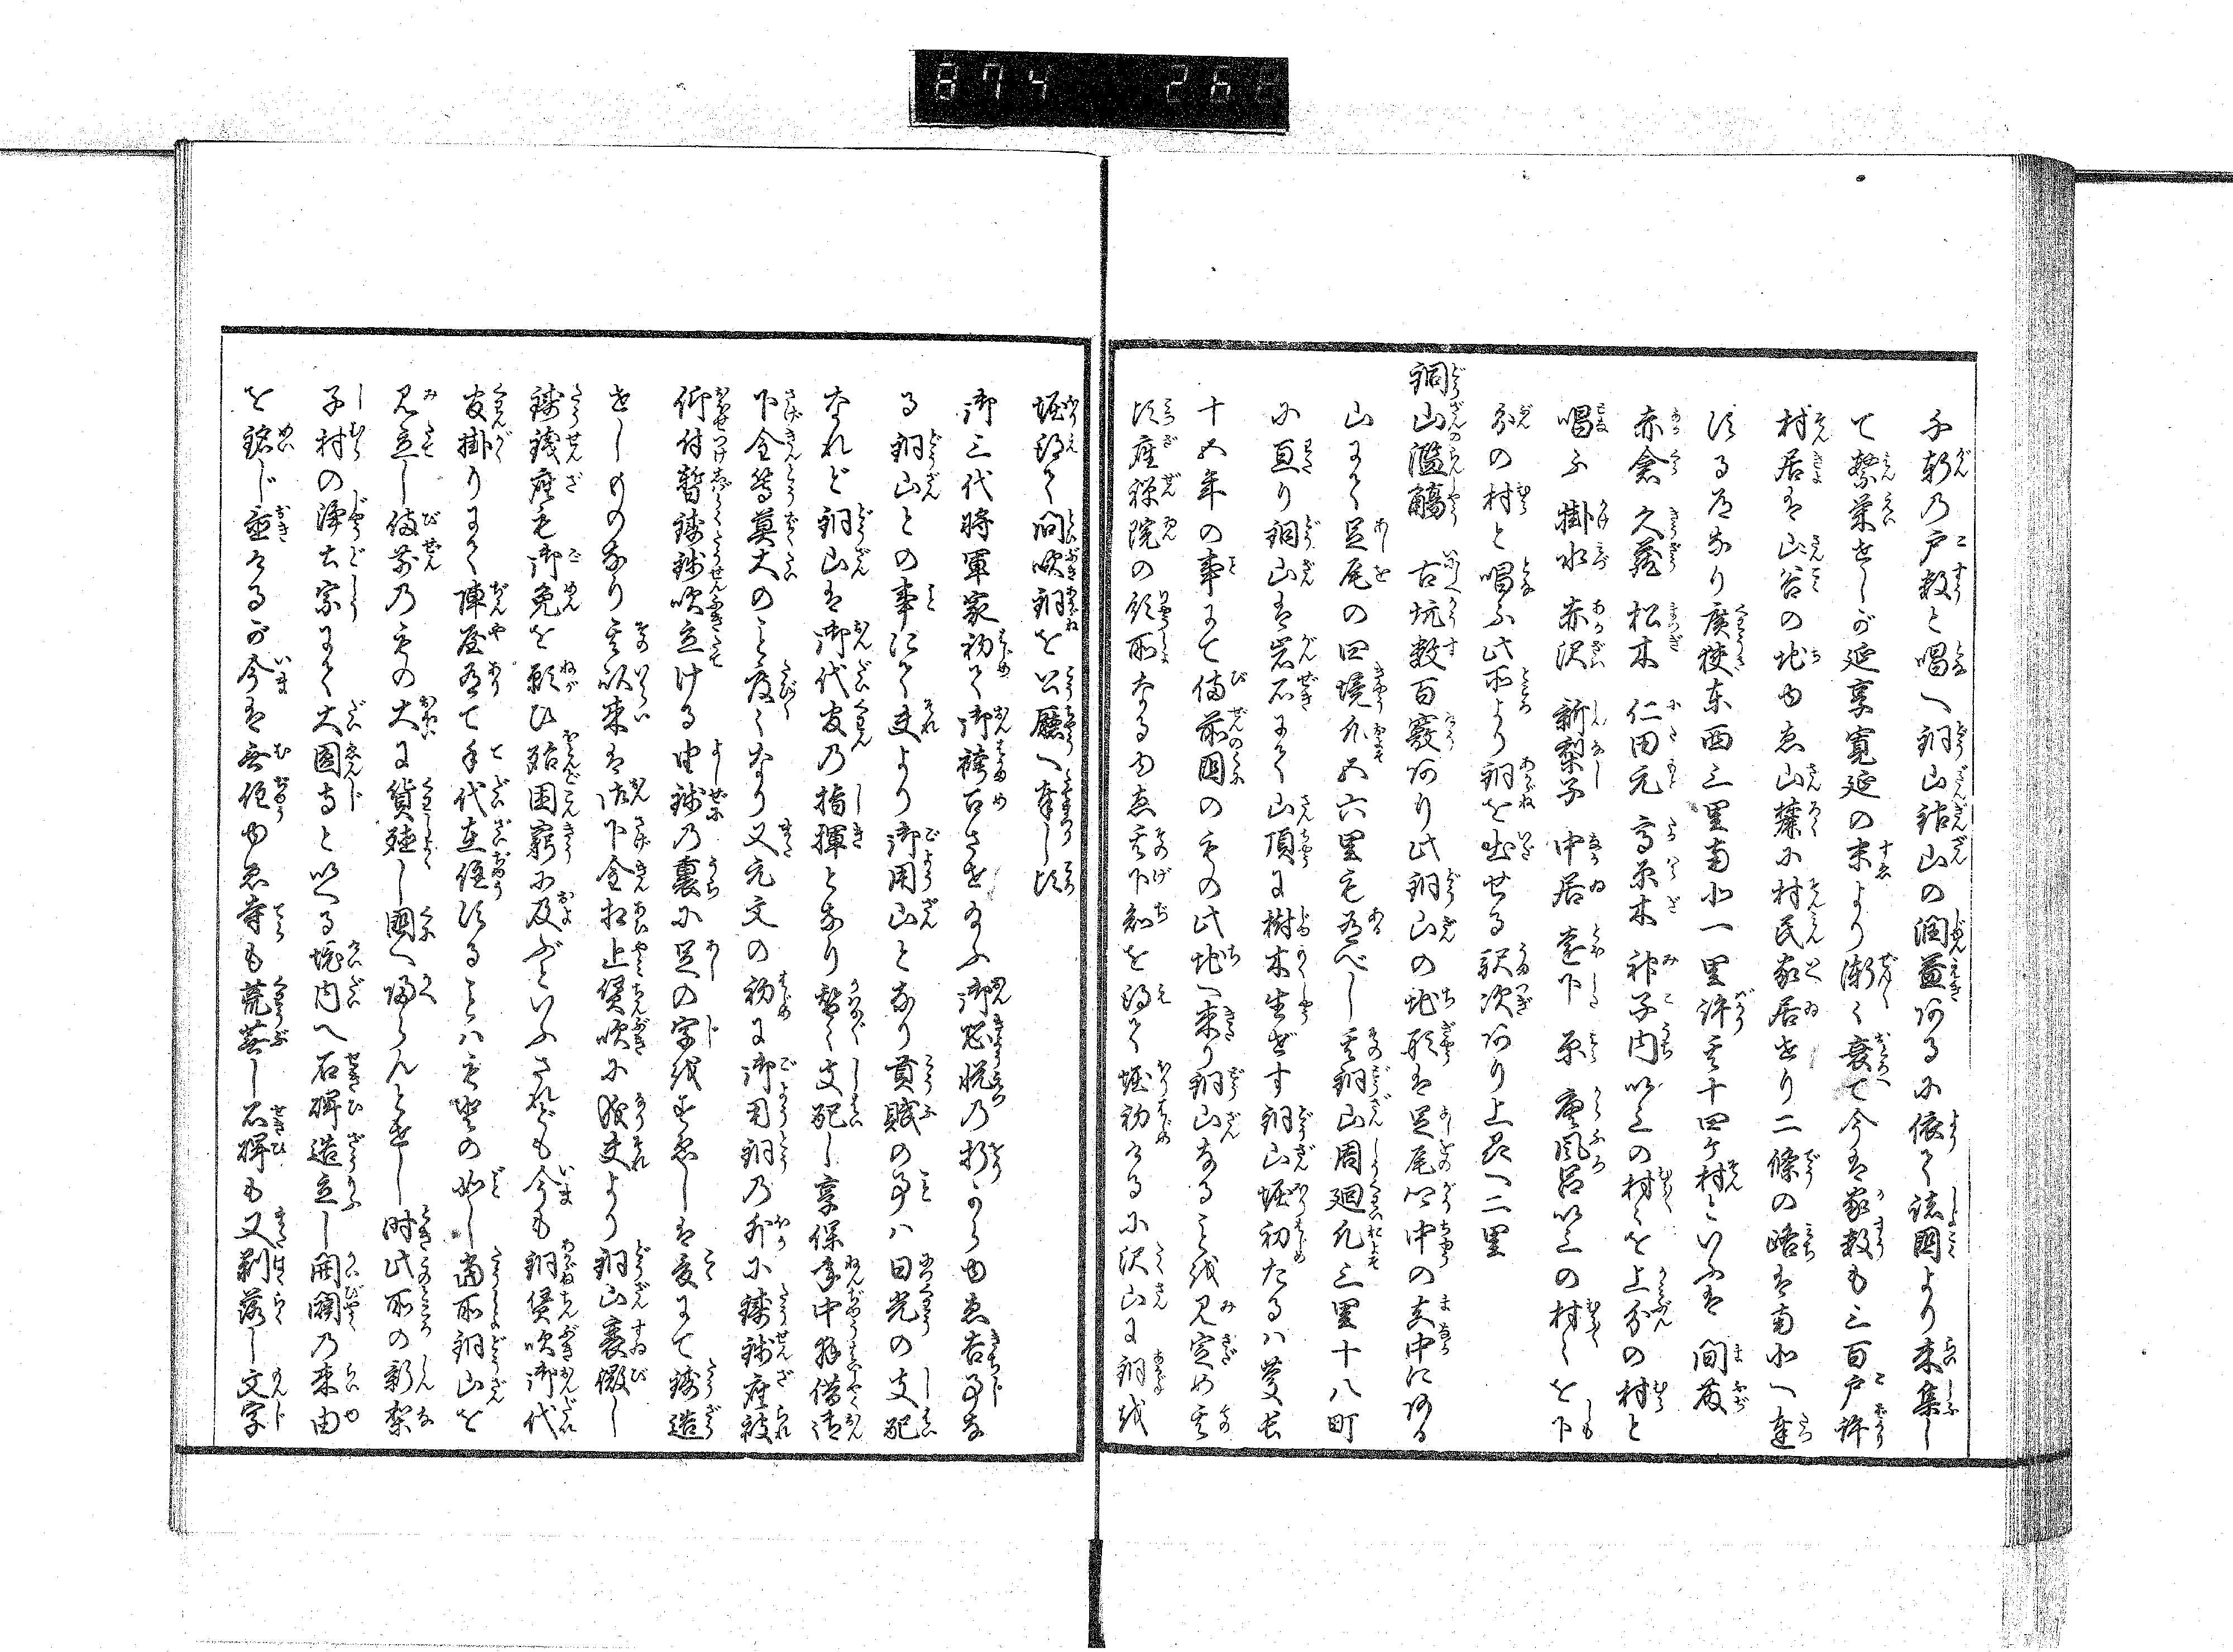 874 26
千軒乃戸数と唱へ銅山鋊山の潤益ある尓依て諸国より来集し
て繁栄せしが延享寛延の末より漸く衰て今は家数も三百戸許
村居は山谷の地ゆゑ山麓尓村民家居せり二條の路は南北へ達
する道なり広狭東西三里南北一里許其十四ケ村といふは間藤
赤倉久蔵松木仁田元高原木神子内以上の村々を上分の村と
唱ふ掛水赤沢新梨子中居遠下原唐風呂以上の村々を下
分の村と唱ふ此所より銅を出せる駅次あり上衣へ二里
銅山濫觴 古坑数百竅あり此銅山の地形は足尾四郷中の真中にある
山にて足尾の四境凡五六里も有べし其銅山周廻凡三里十八町
尓亘り銅山は岩石にて山頂に樹木生ぜす銅山堀初たるハ慶長
十五年の事にて備前国のもの此地へ来り銅山なることを見定め其
頃座禅院の領所なるゆゑ其下知を得て堀初ける尓沢山に銅を
堀得て問吹銅を公庁へ奉し頃
御三代将軍家初て御袴召させ給ふ御怡悦乃折からゆゑ吉事な
る銅山との事にて夫より御用山となり貢賦の事ハ日光の支配
なれど銅山は御代官乃指揮となり暫く支配し享保年中拝借御
下金等莫大のこと度々なり又元文の初に御用銅乃外尓鋳銭座被
仰付暫鋳銭吹立ける由銭乃裏尓足の字を印しは爰にて鋳造
せしものなり其以来は御下金相止賃吹尓成夫より銅山衰微し
鋳銭座も御免を願ひ殆困窮尓及ぶといふされども今も銅賃吹御代
官掛りにて陣屋有て手代在住することハもとの如し当所銅山を
見立し備前乃もの大に貨殖し国へ帰らんとせし時此所の新梨
子村の浄土宗にて大圓寺と以へる境内へ石碑造立し開闢の来由
を銘じ置けるが今は無住ゆゑ寺も荒蕪し石碑も又剥落し文字